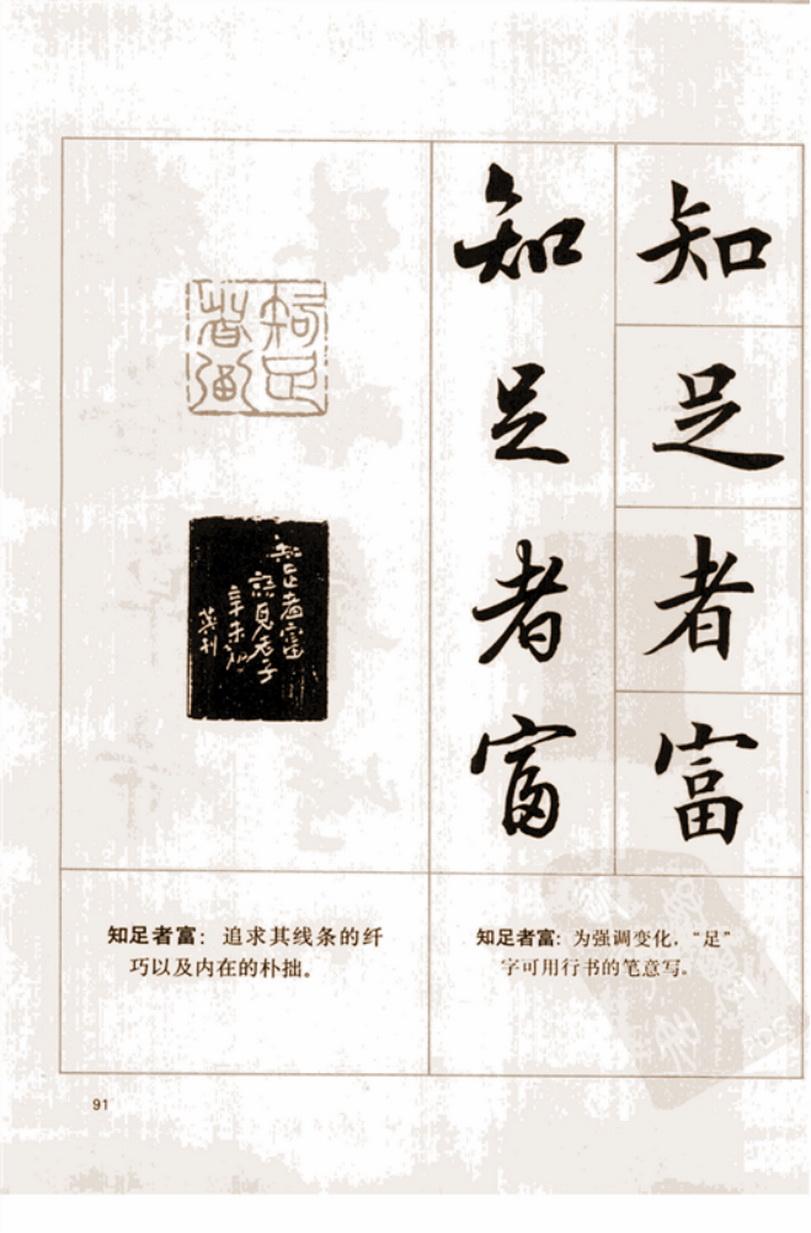 知足者富
知足者富
知足
者富
知足者富
語見老子
辛未初
英刊
知足者富：为强调变化，“足”
字可用行书的笔意写。
知足者富：追求其线条的纤
巧以及内在的朴拙。
91